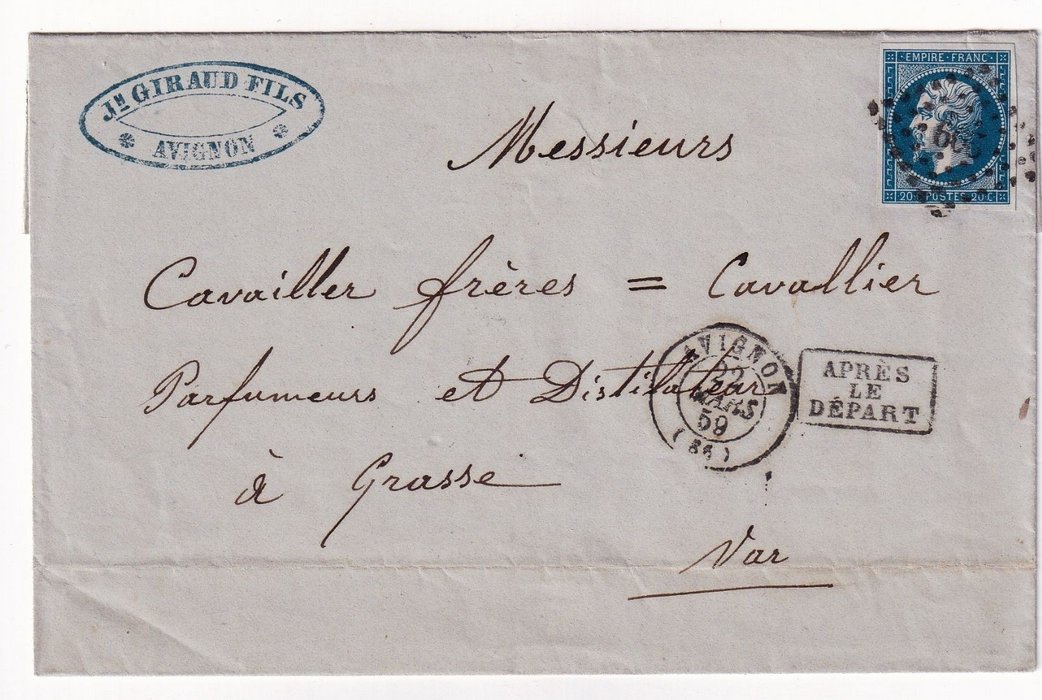 Jh GIRAUD FILS
AVIGNON
EMPIRE FRANC
20 C POSTES 20 C
Messieurs
Cavailler frères = Cavallier
Parfumeurs et Distilateurs
à Grasse
Var
AVIGNON
22
MARS
59
(86)
APRÈS
LE
DÉPART